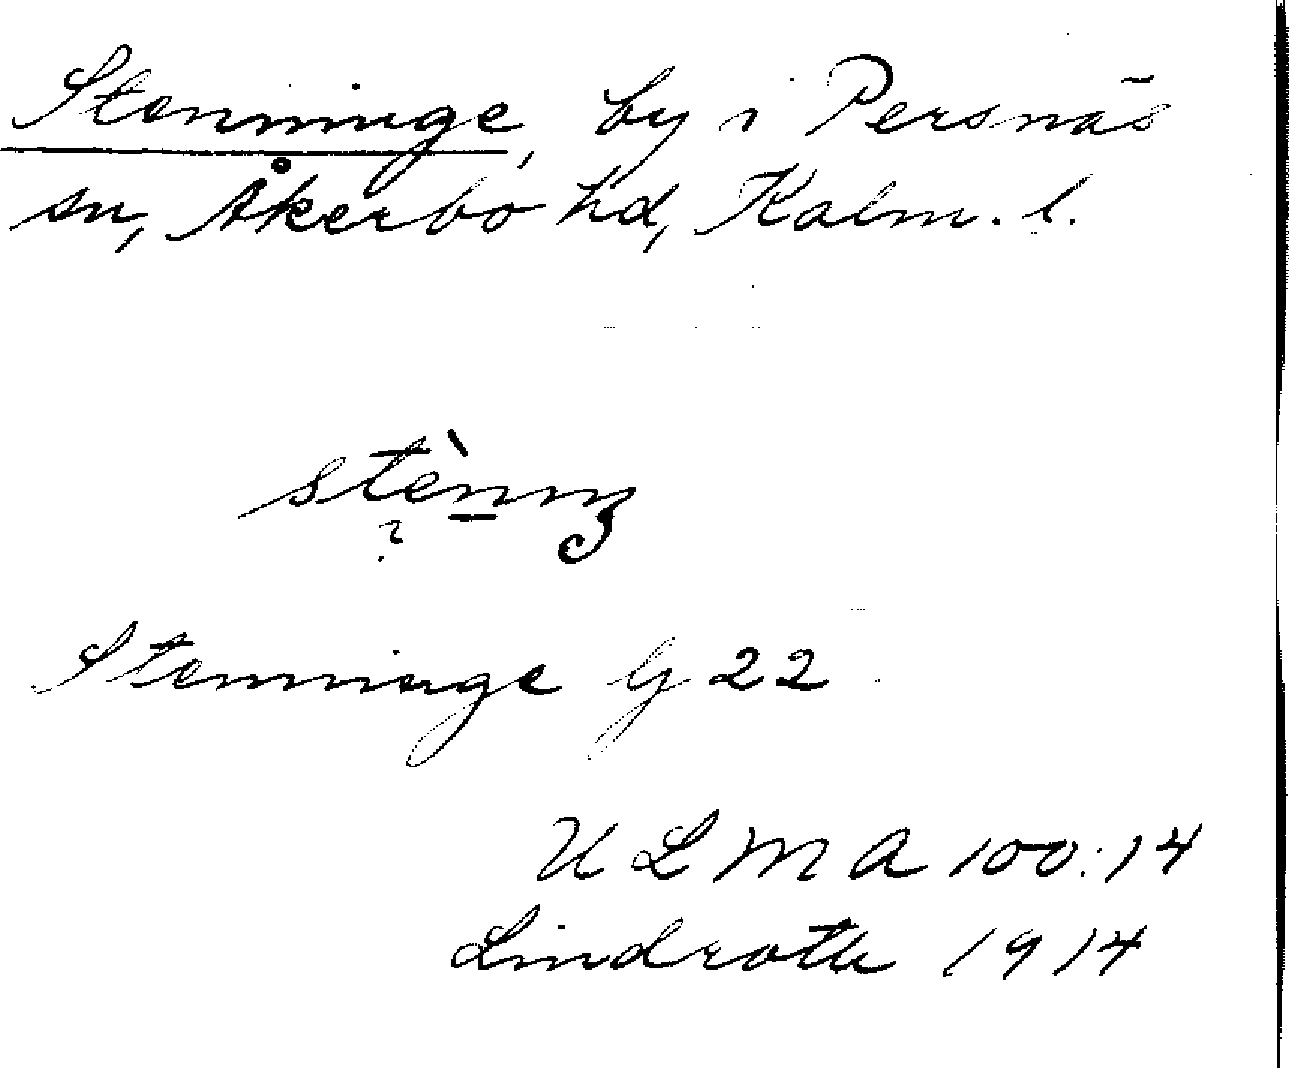 Stenninge, by i Persnäs
sn, Åkerbo hd, Kalm. l.
Stenninge G 22
ULMA 100:14
Lindroth 1914